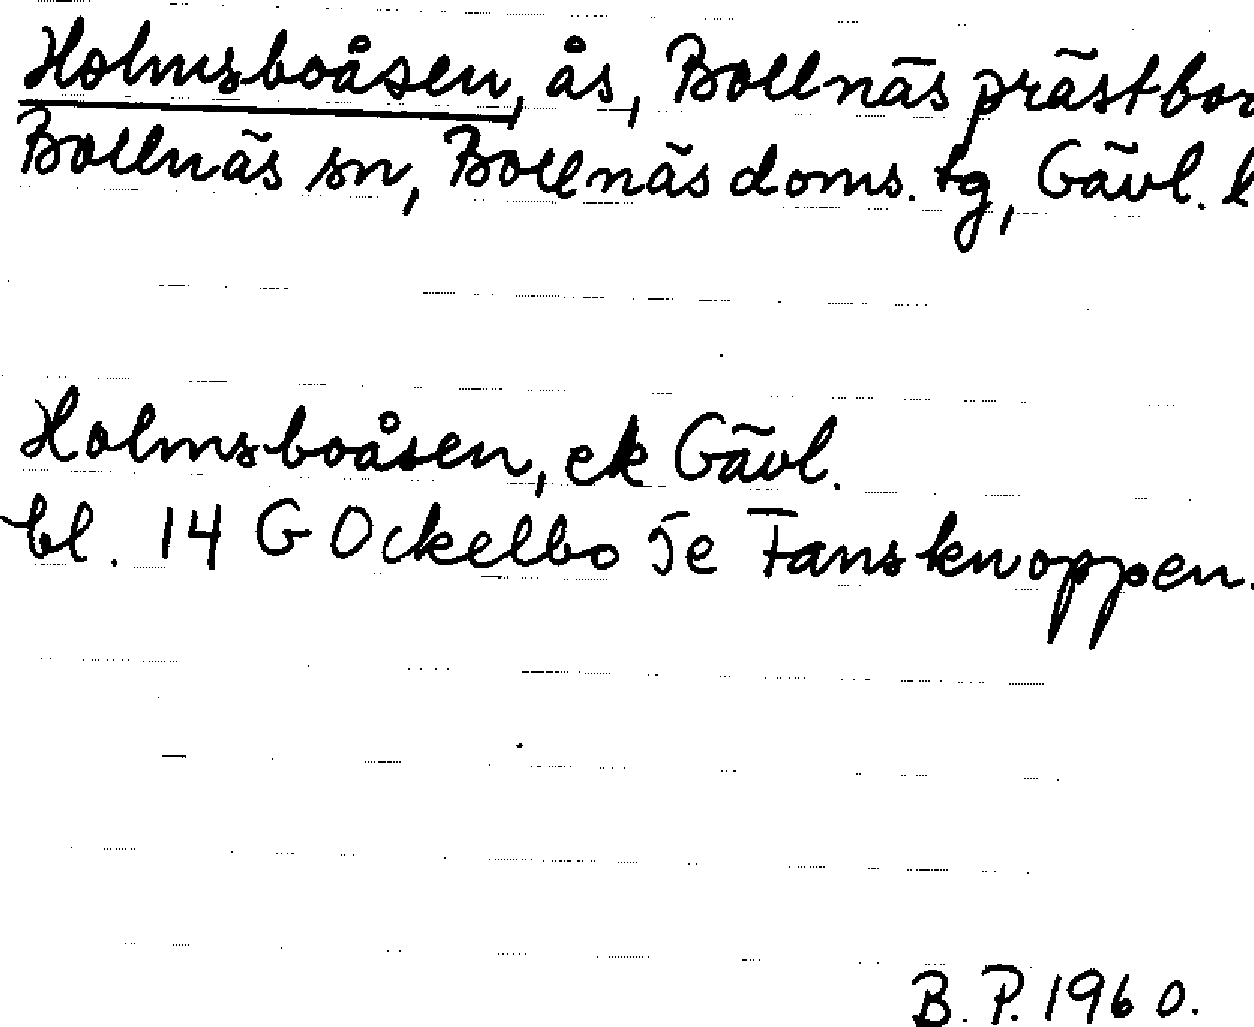 Holmsboåsen, ås, Bollnäs prästbor
Bollnäs sn, Bollnäs doms. tg, Gävl. l
Holmsboåsen, ek Gävl.
bl. 14 G Ockelbo 5e Fansknoppen.
B. P. 1960.